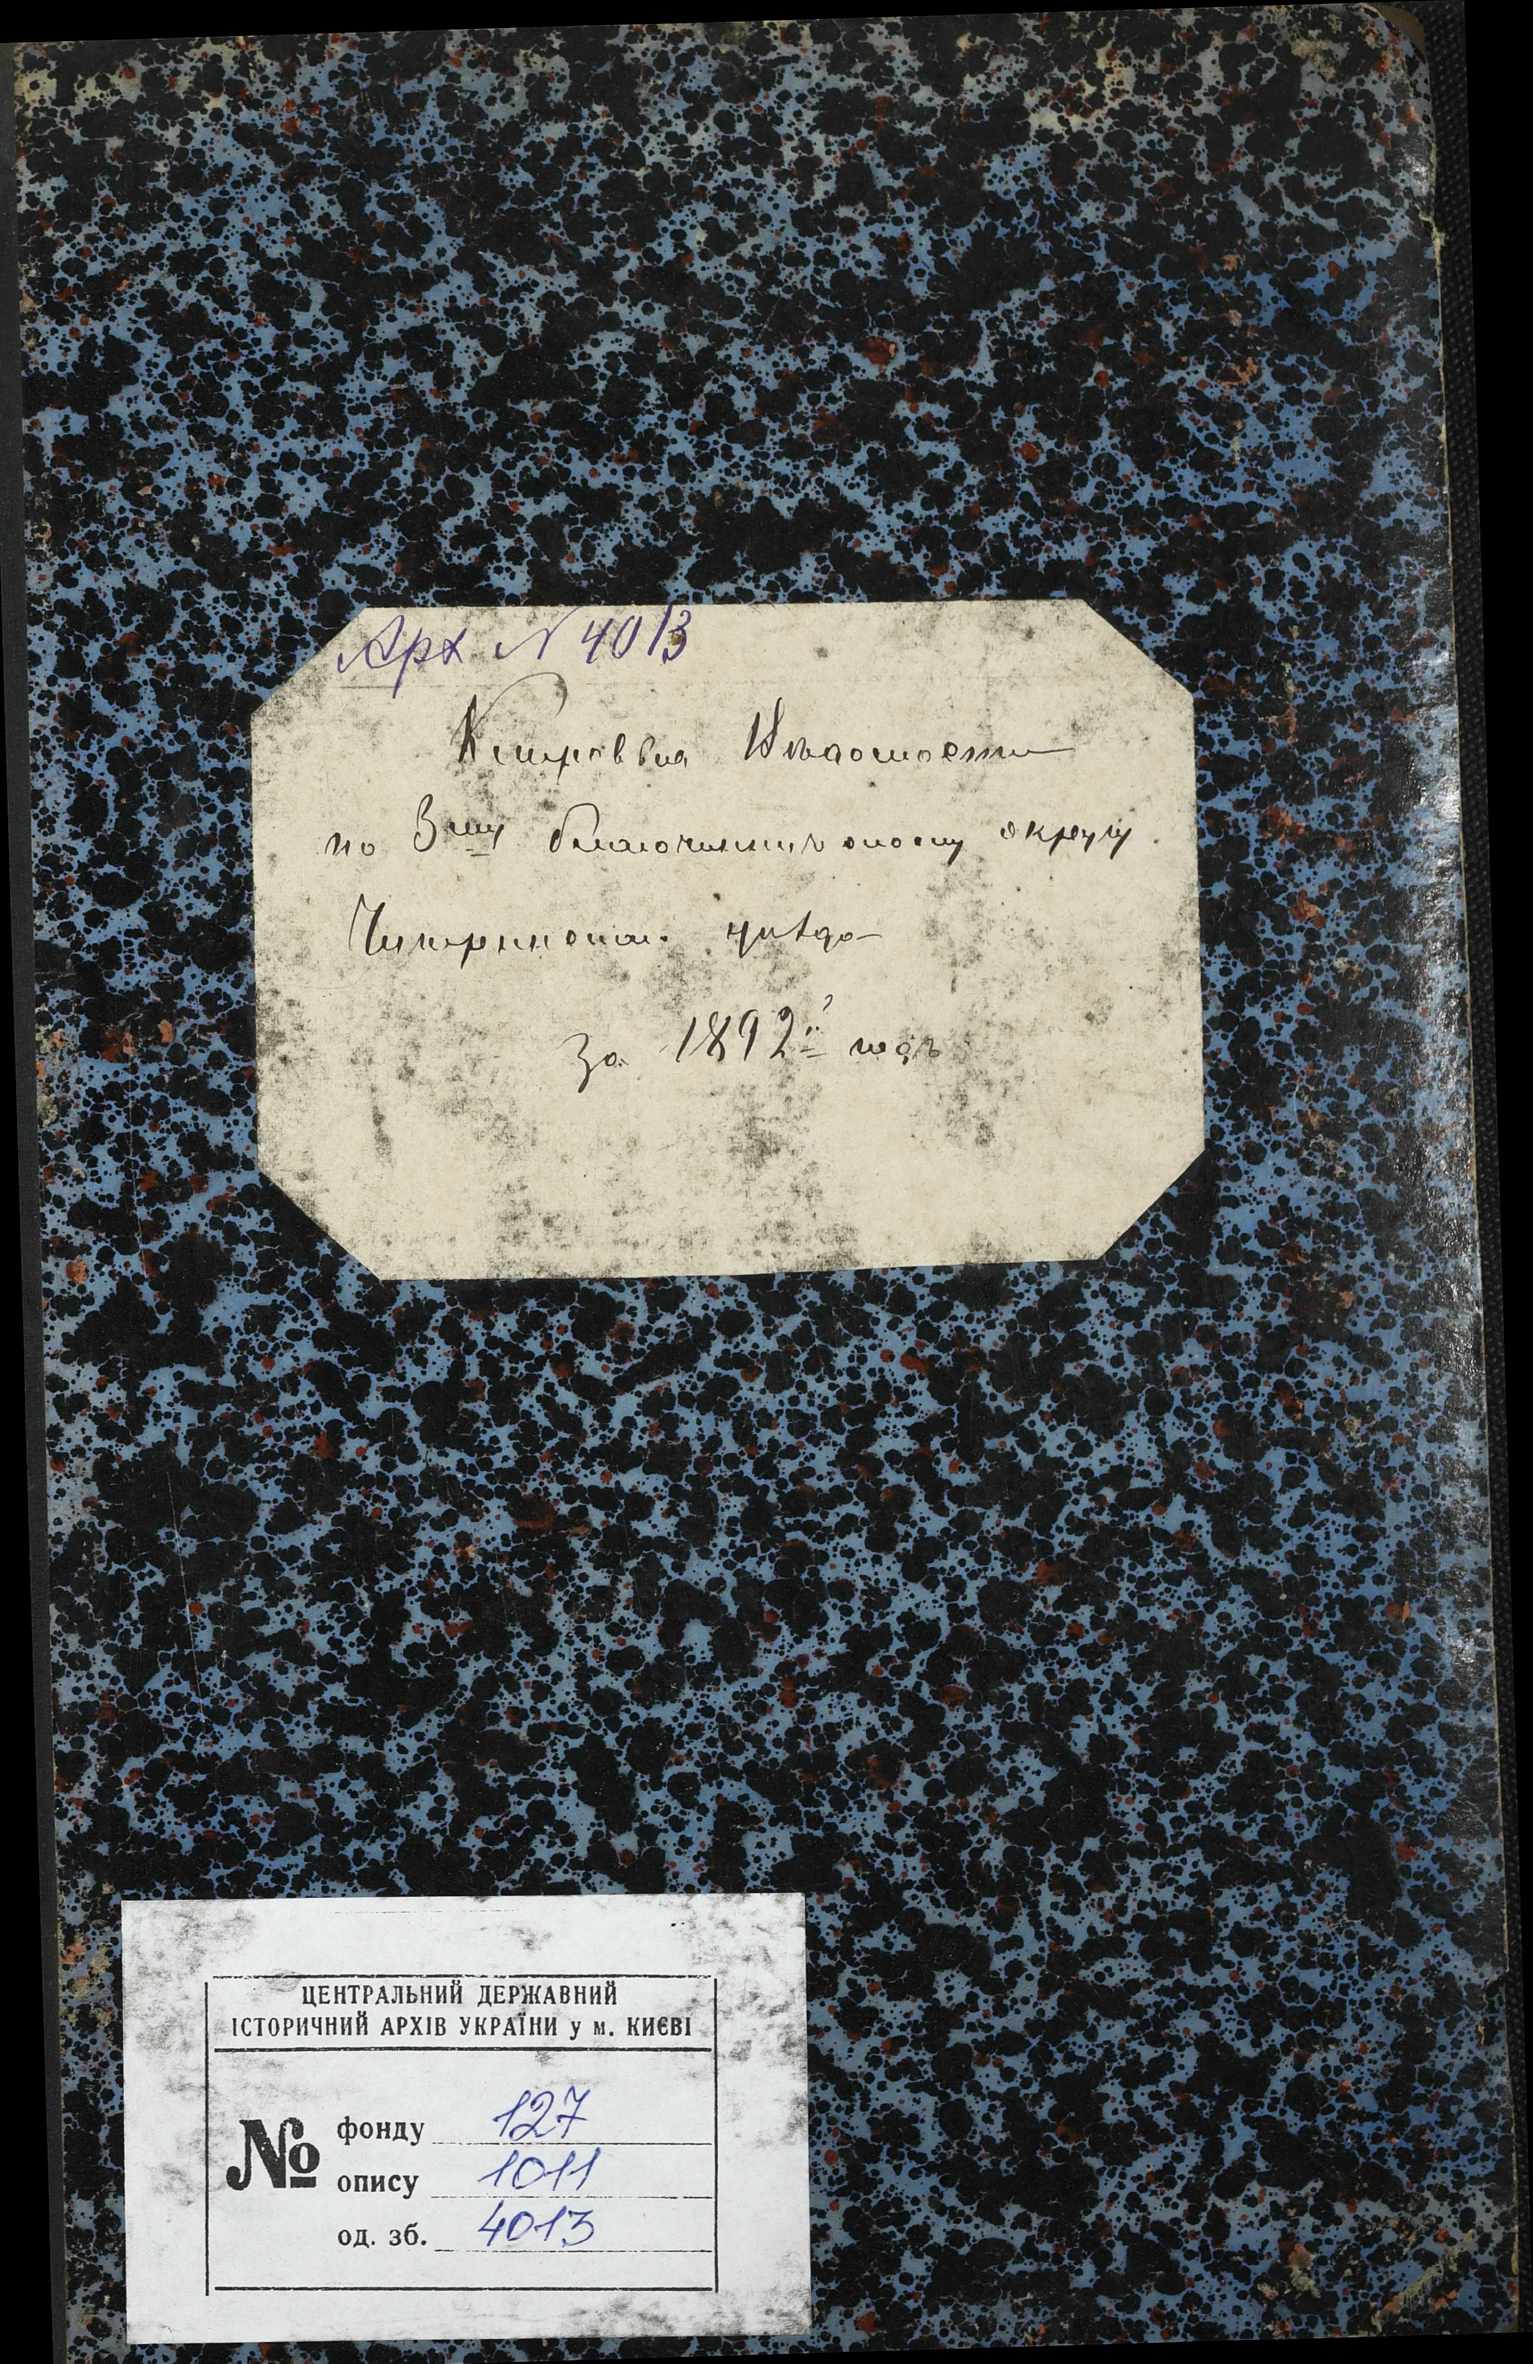 Арх № 4013
Клировыя Вѣдомости
по 3му благочинническому округу
Чигиринскаго уѣзда
За 1892й годъ
ЦЕНТРАЛЬНИЙ ДЕРЖАВНИЙ
ІСТОРИЧНИЙ АРХІВ УКРАЇНИ у м. КИЄВІ
№
фонду 127
опису 1011
од. зб. 4013